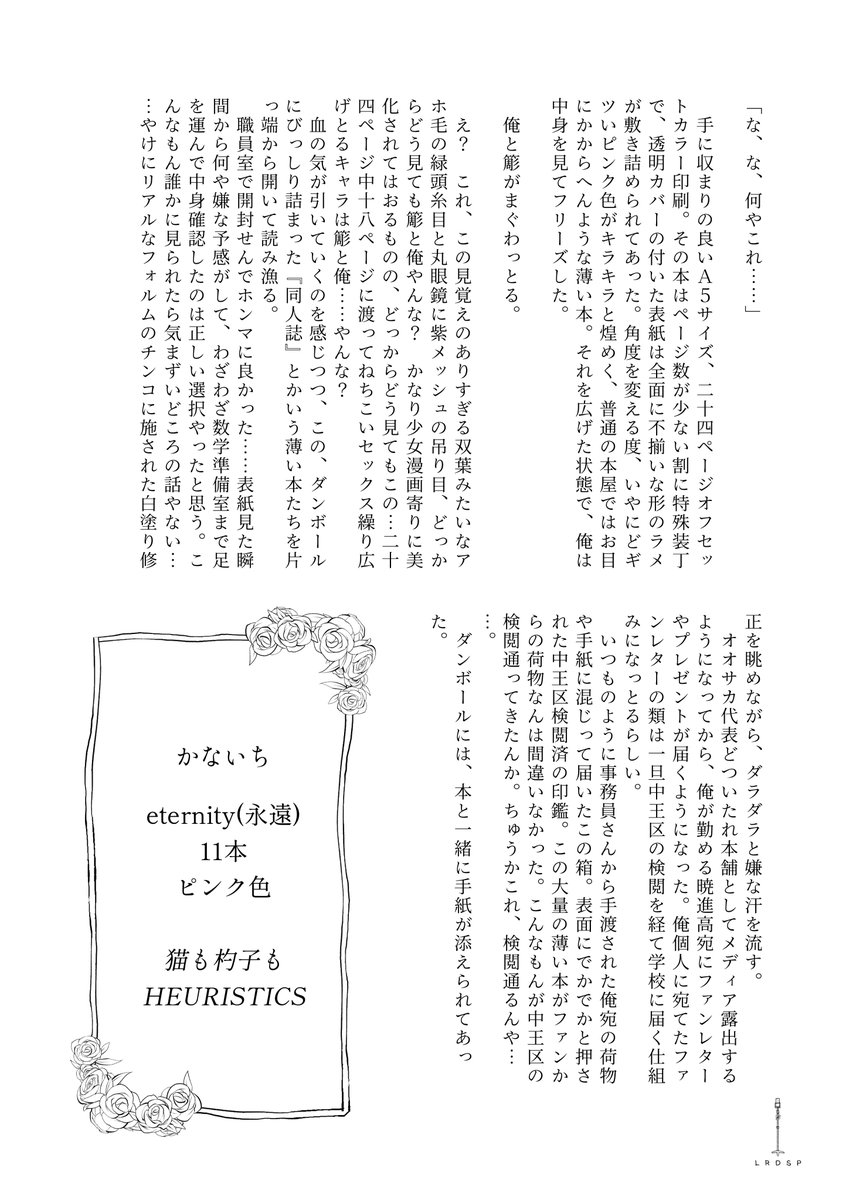 「な、な、何やこれ……」
手に収まりの良いＡ５サイズ、二十四ページオフセッ
トカラー印刷。その本はページ数が少ない割に特殊装丁
で、透明カバーの付いた表紙は全面に不揃いな形のラメ
が敷き詰められてあった。角度を変える度、いやにどギ
ツいピンク色がキラキラと煌めく、普通の本屋ではお目
にかからへんような薄い本。それを広げた状態で、俺は
中身を見てフリーズした。
俺と簓がまぐわっとる。
え？　これ、この見覚えのありすぎる双葉みたいなア
ホ毛の緑頭糸目と丸眼鏡に紫メッシュの吊り目、どっか
らどう見ても簓と俺やんな？　かなり少女漫画寄りに美
化されてはおるものの、どっからどう見てもこの…二十
四ページ中十八ページに渡ってねちこいセックス繰り広
げとるキャラは簓と俺……やんな？
血の気が引いていくのを感じつつ、この、ダンボール
にびっしり詰まった『同人誌』とかいう薄い本たちを片
っ端から開いて読み漁る。
職員室で開封せんでホンマに良かった……表紙見た瞬
間から何や嫌な予感がして、わざわざ数学準備室まで足
を運んで中身確認したのは正しい選択やったと思う。こ
んなもん誰かに見られたら気まずいどころの話やない…
…やけにリアルなフォルムのチンコに施された白塗り修
正を眺めながら、ダラダラと嫌な汗を流す。
オオサカ代表どついたれ本舗としてメディア露出する
ようになってから、俺が勤める暁進高宛にファンレター
やプレゼントが届くようになった。俺個人に宛てたファ
ンレターの類は一旦中王区の検閲を経て学校に届く仕組
みになっとるらしい。
いつものように事務員さんから手渡された俺宛の荷物
や手紙に混じって届いたこの箱。表面にでかでかと押さ
れた中王区検閲済の印鑑。この大量の薄い本がファンか
らの荷物なんは間違いなかった。こんなもんが中王区の
検閲通ってきたんか。ちゅうかこれ、検閲通るんや…
…。
ダンボールには、本と一緒に手紙が添えられてあっ
た。
かないち
eternity(永遠)
11本
ピンク色
猫も杓子も
HEURISTICS
LRDSP